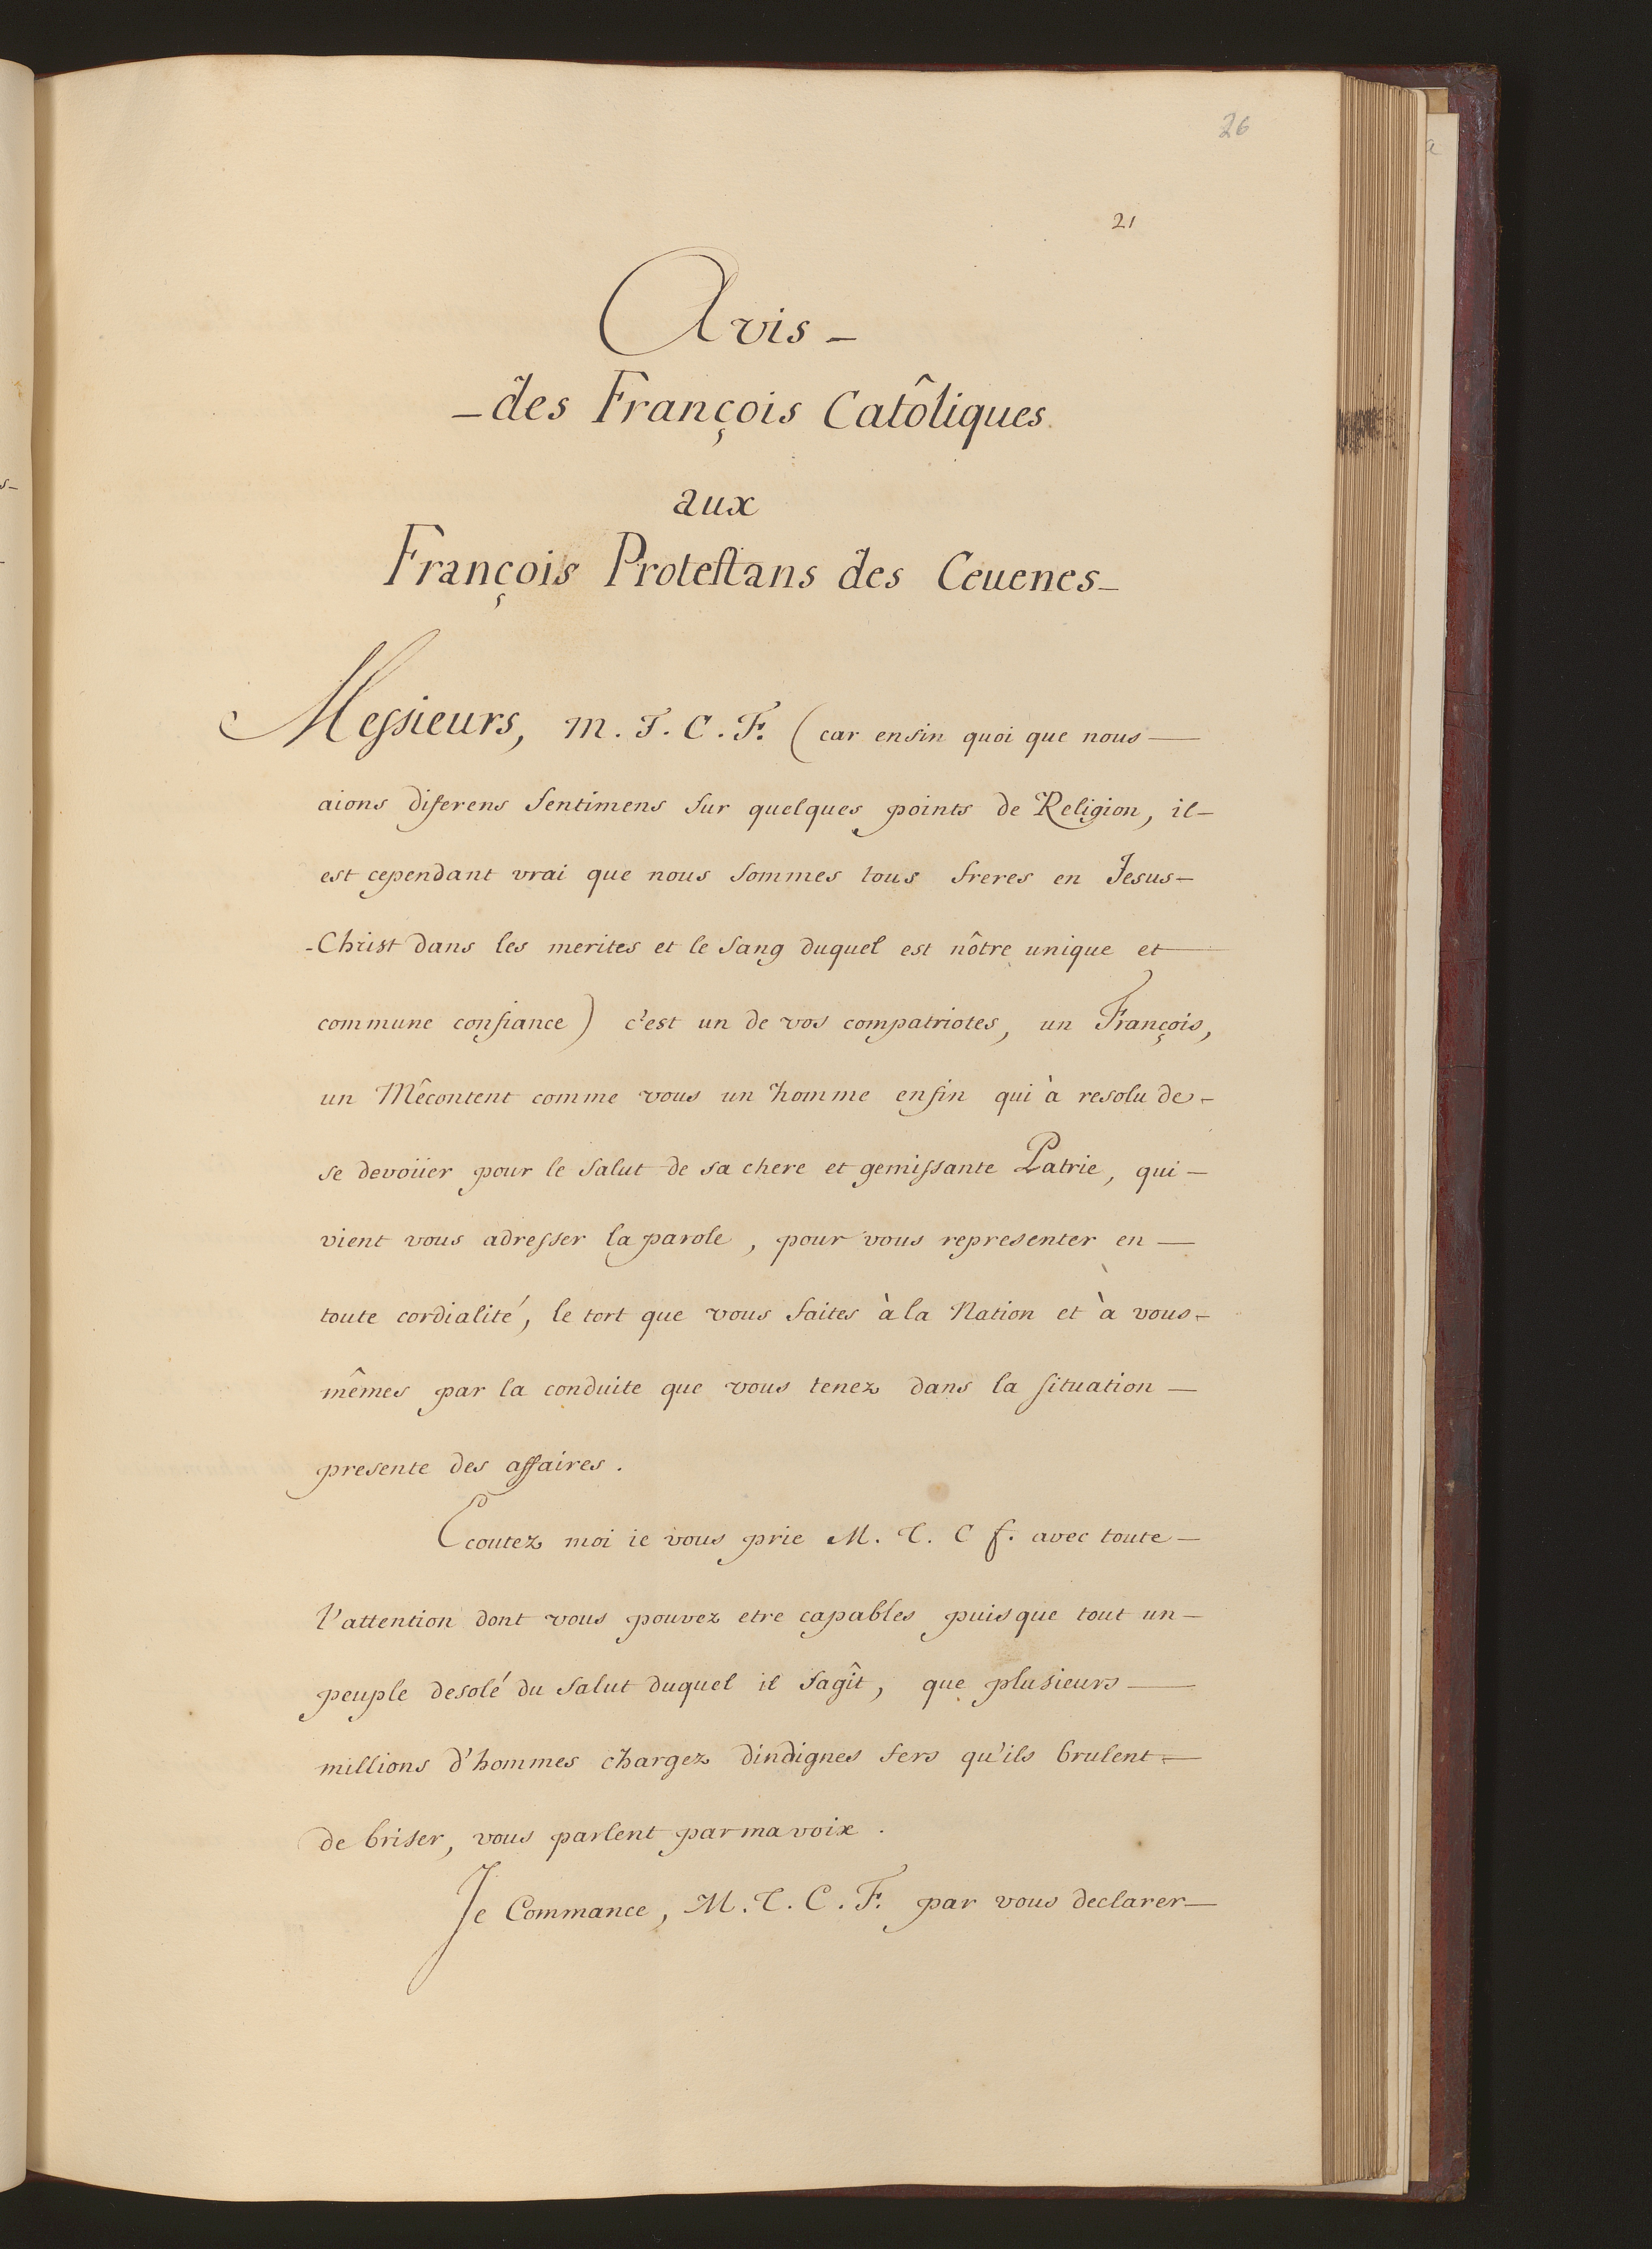 26
21
Avis -
- des François Catôliques.
aux
François Protestans des Ceuenes -
Messieurs, M. T. C. F. (car enfin quoi que nous —
aions diferens sentimens sur quelques points de Religion, il -
est cependant vrai que nous sommes tous freres en Jesus -
- Christ dans les merites et le sang duquel est nôtre unique et —
commune confiance) c'est un de vos compatriotes, un François,
un Mêcontent comme vous un homme enfin qui à resolu de -
se devoüer pour le salut de sa chere et gemissante Patrie, qui -
vient vous adresser la parole, pour vous representer en —
toute cordialité, le tort que vous faites à la Nation et à vous -
mêmes par la conduite que vous tenez dans la situation —
presente des affaires.
Ecoutez moi ie vous prie M. T. C f. avec toute —
l'attention dont vous pouvez etre capables puisque tout un —
peuple desolé du salut duquel il sagît, que plusieurs —
millions d'hommes chargez dindignes fers qu'ils brulent =
de briser, vous parlent par ma voix.
Je Commance, M. T. C. F. par vous declarer —